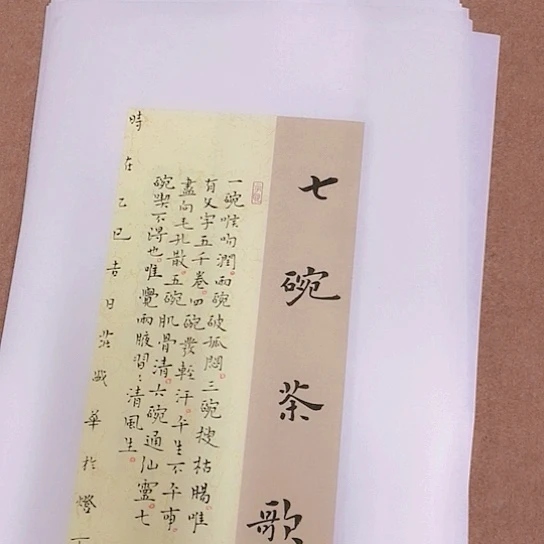 七碗茶歌
一碗喉吻潤。兩碗破孤悶。三碗搜枯腸。唯
有文字五千卷。四碗發輕汗。平生不平事。
盡向毛孔散。五碗肌骨清。六碗通仙靈。七
碗喫不得也。唯覺兩腋習々清風生。
時在乙巳吉日莊盛華於燈